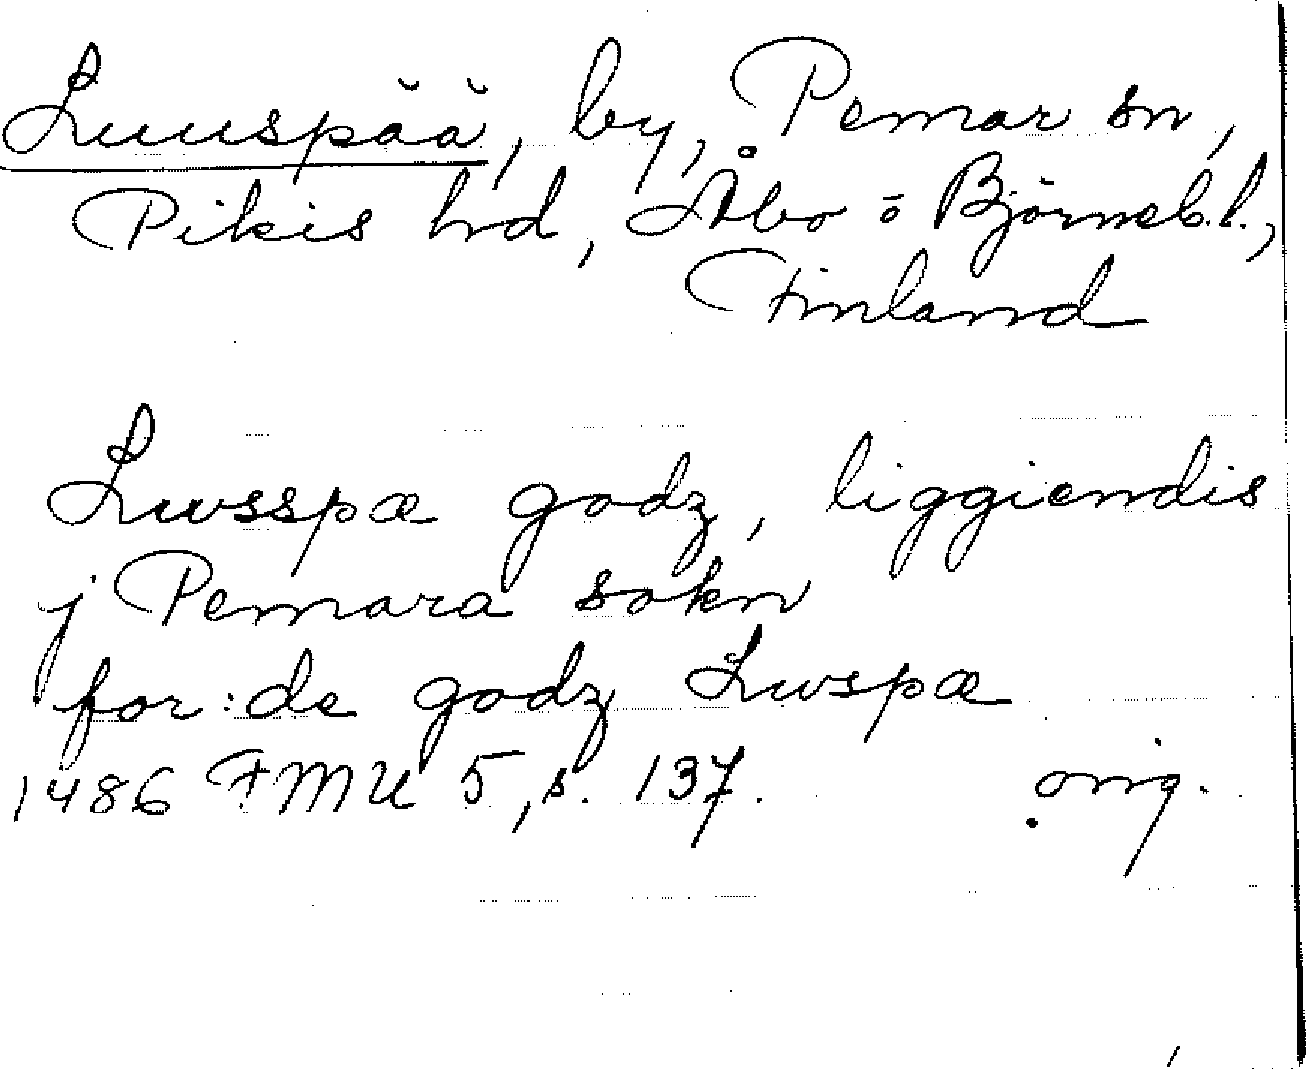 Luuspää, by, Pemar sn,
Pikis hd, Åbo o Björneb.l.,
Finland
Lwsspæ godz, liggiendis
j Pemara sokn
for:de godz Lwspæ
1486 FMU 5, s. 137. orig.